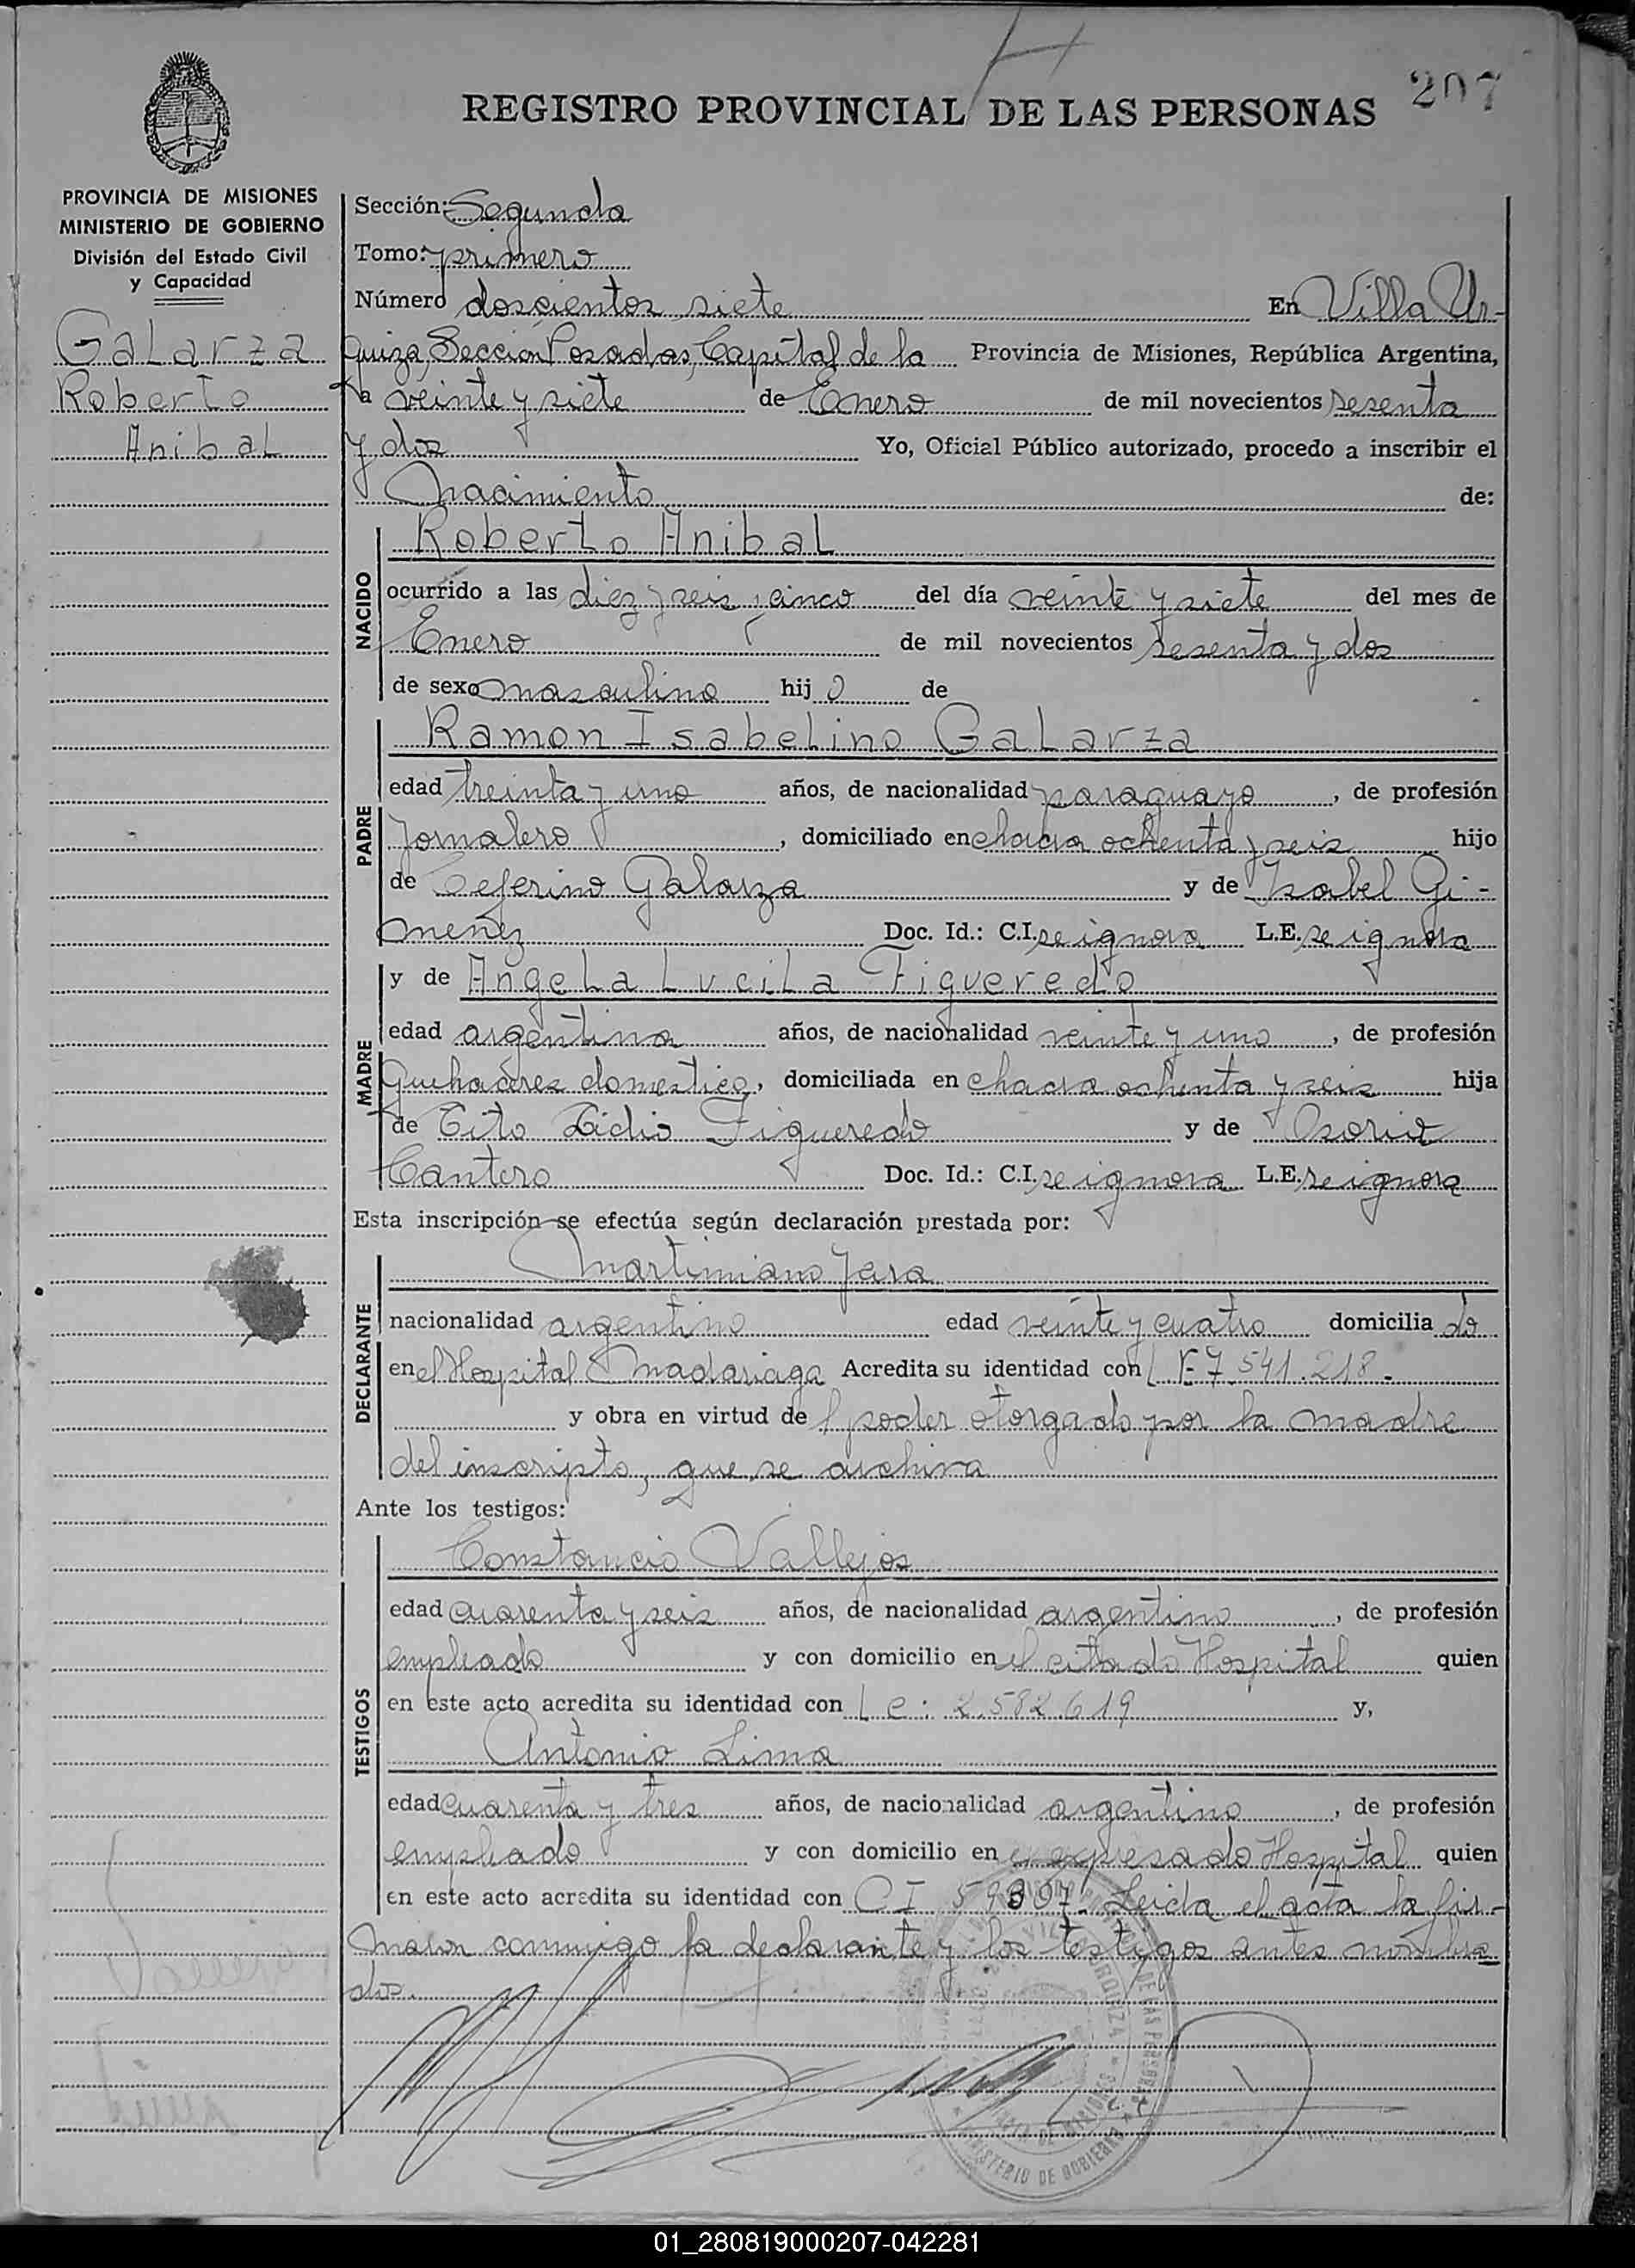 207
REGISTRO PROVINCIAL DE LAS PERSONAS
PROVINCIA DE MISIONES
MINISTERIO DE GOBIERNO
División del Estado Civil
y Capacidad
Galarza
Roberto
Anibal
Sección: Segunda
Tomo: primero
Número doscientos siete En Villa Ur-
quiza, Sección Posadas, Capital de la Provincia de Misiones, República Argentina,
a veinte y siete de Enero de mil novecientos sesenta
y dos Yo, Oficial Público autorizado, procedo a inscribir el
Nacimiento de:
NACIDO
Roberto Anibal
ocurrido a las diez y seis, cinco del día veinte y siete del mes de
Enero de mil novecientos sesenta y dos
de sexo masculino hijo de
PADRE
Ramon Isabelino Galarza
edad treinta y uno años, de nacionalidad paraguayo, de profesión
Jornalero, domiciliado en chacra ochenta y seis hijo
de Ceferino Galarza y de Isabel Gi-
menez Doc. Id.: C.I. se ignora L.E. se ignora
MADRE
y de Angela Lucila Figueredo
edad argentina años, de nacionalidad veinte y uno, de profesión
Quehaceres domestico, domiciliada en chacra ochenta y seis hija
de Tito Lidio Figueredo y de
Cantero Doc. Id.: C.I. se ignora L.E. se ignora
Esta inscripción se efectúa según declaración prestada por:
DECLARANTE
Martimiano Jara
nacionalidad argentino edad veinte y cuatro domiciliado
en el Hospital Madariaga Acredita su identidad con L E 7.541.218.-
y obra en virtud del poder otorgado por la madre
del inscripto, que se archiva
Ante los testigos:
TESTIGOS
Constancio Vallejos
edad cuarenta y seis años, de nacionalidad argentino, de profesión
empleado y con domicilio en el citado Hospital quien
en este acto acredita su identidad con L e: 2.582.619 y,
Antonio Lima
edad cuarenta y tres años, de nacionalidad argentino, de profesión
empleado y con domicilio en expresado Hospital quien
en este acto acredita su identidad con C I 59897 Leida el acta la fir-
man conmigo la declarante y los testigos antes nombra
dos.
MINISTERIO DE GOBIERNO
01_280819000207-042281